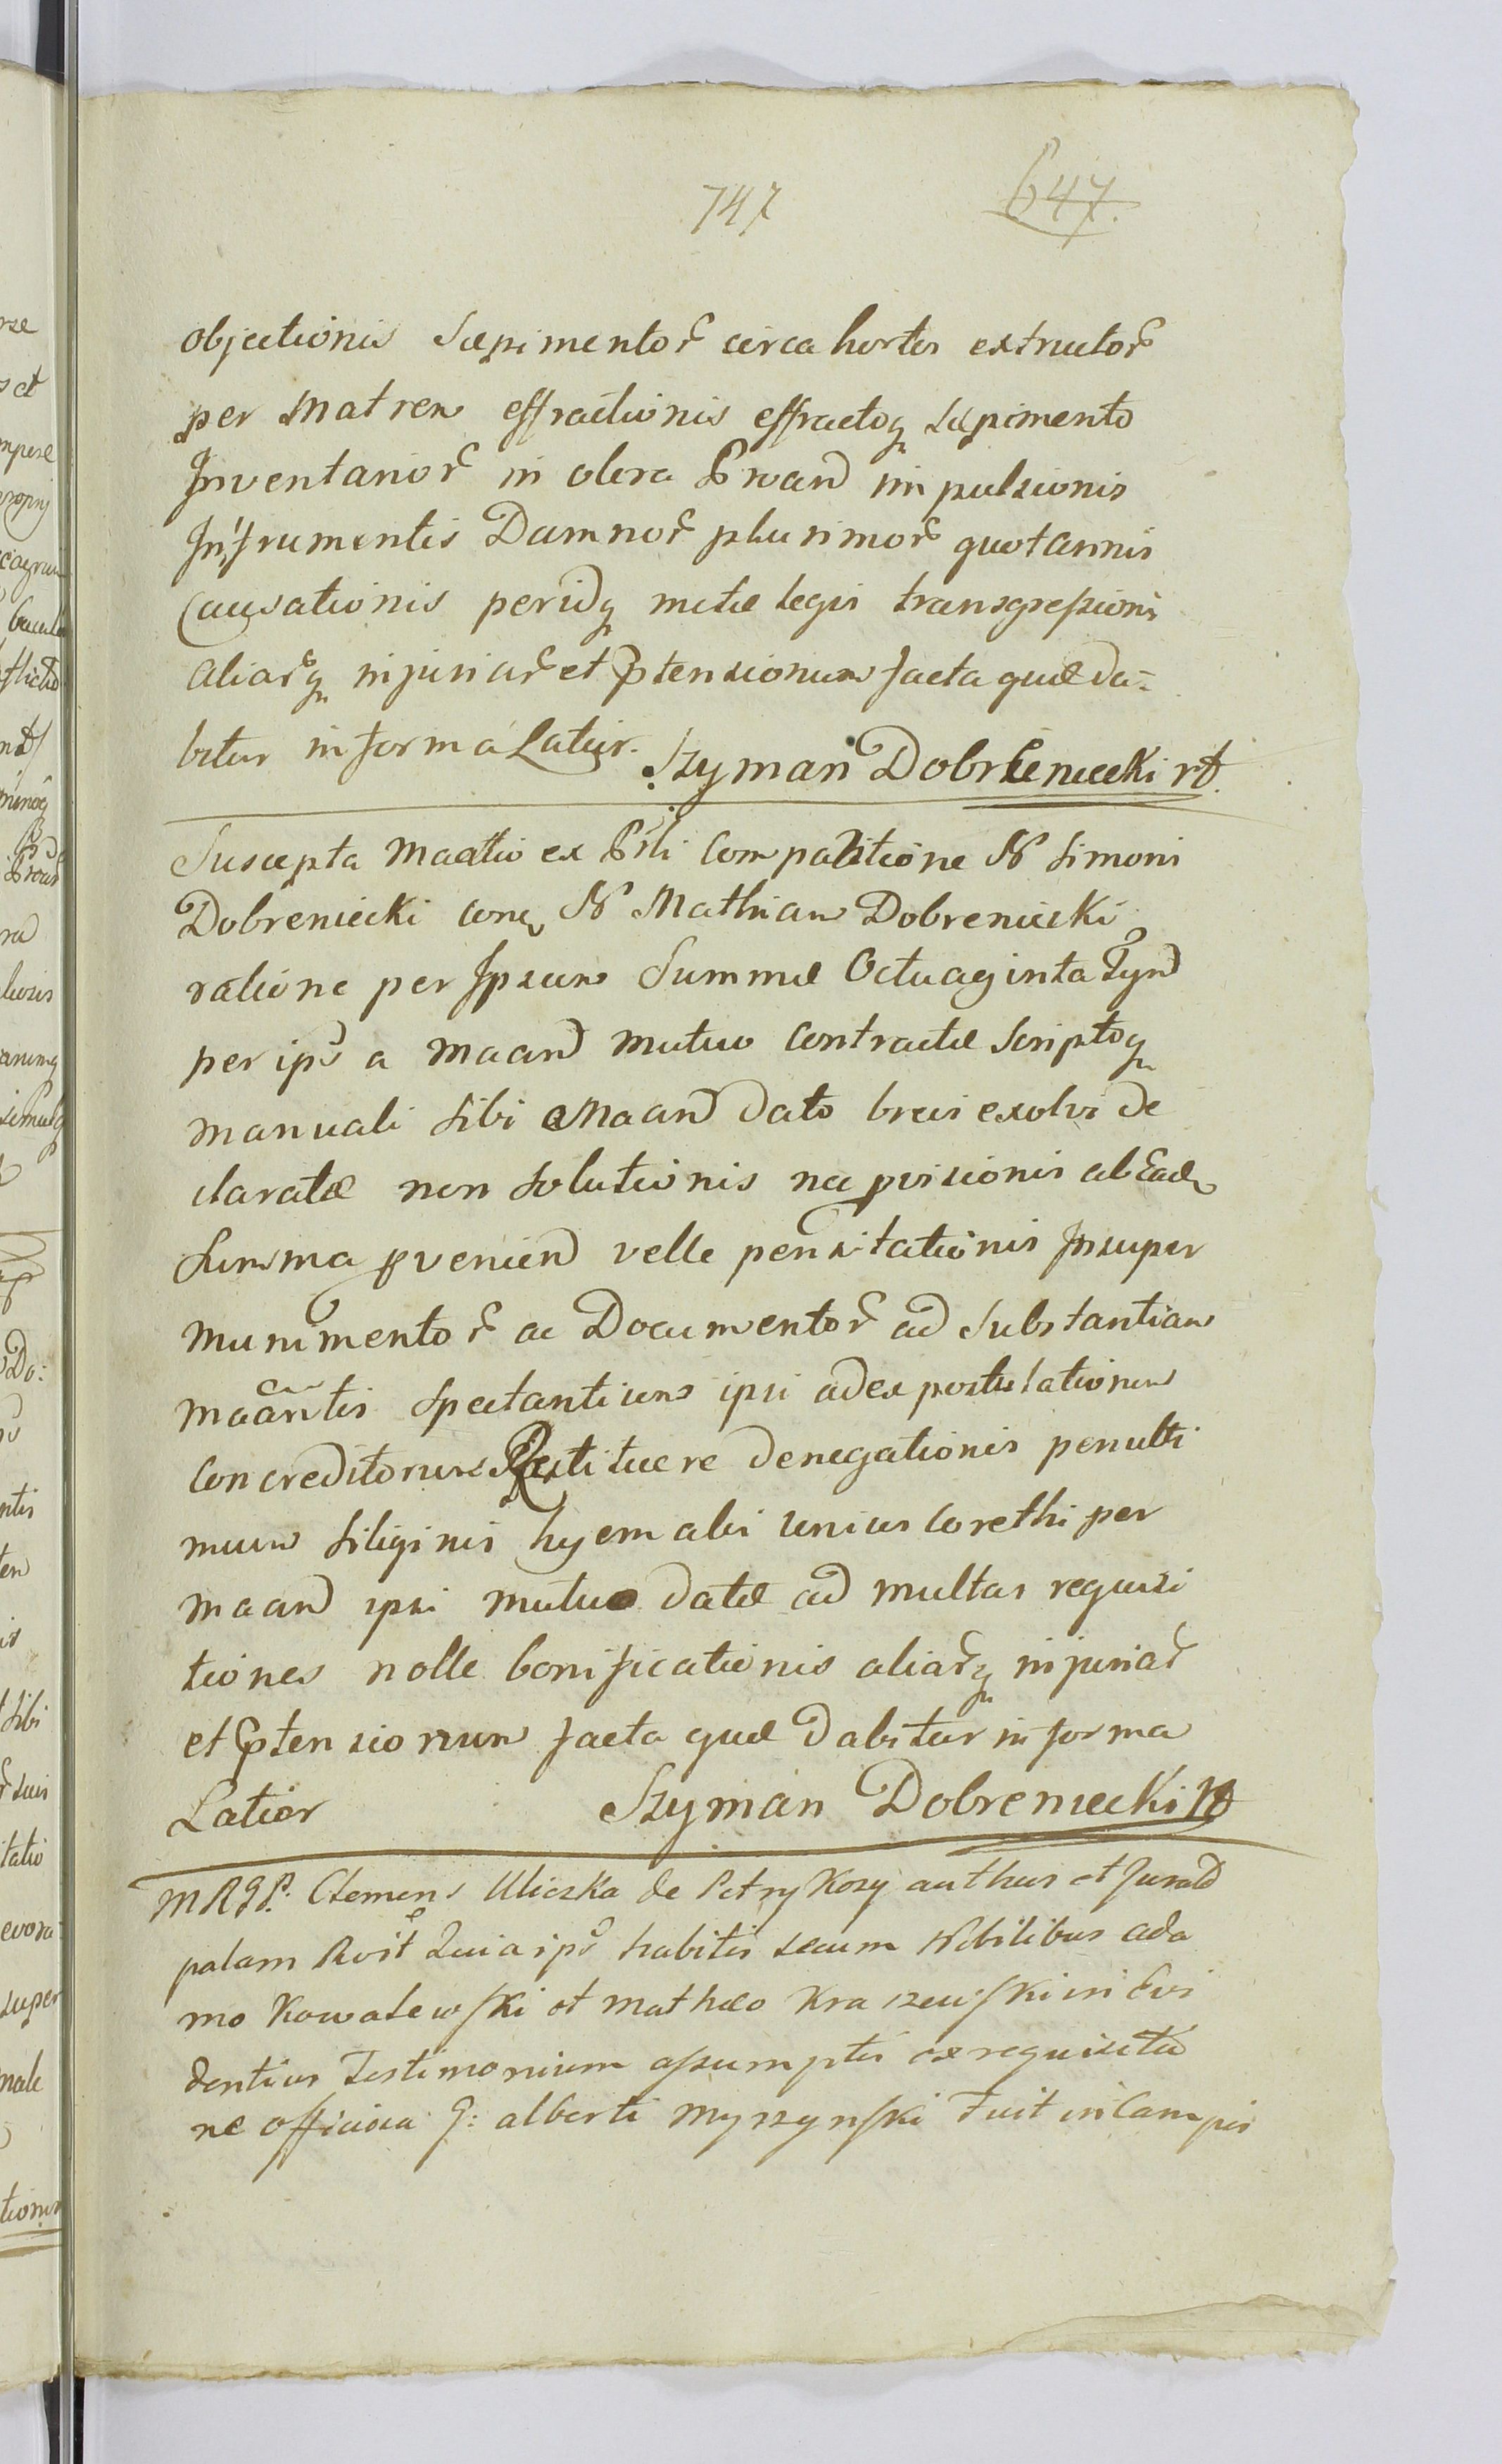 747 647.
objectionis Sæpimentor̃ circa hortos extructor̃
per Matrem effractionis effractoq sæpimento
Inventarior̃ in olera Proand impulsionis
Infrumentis Damnor̃ plurimor̃ quotannis
Causationis peridq metæ legis transgressionis
aliar̃q injuriar̃ et Ptensionum facta quæ da-
bitur in forma Latior. Szyman Dobrleniecki rt.
Suscepta Maatio ex Prti Comparitione N Simoni
Dobreniecki con N Mathiam Dobreniecki
ratione per Ipsum Summæ Octuaginta Tyn̄d
per ips̃ a maand mutuo Contractæ Scriptoq
manuali sibi a Maand dato brevi exolvi de
claratæ non solutionis nec provisionis ab Eadē
Summa pvenien̄d velle pensitationis Insuper
munimentor̃ ac Documentor̃ ad Substantiam
maan̄tis Spectantium ipsi ad expostulationem
Concreditorum Restituere denegationis penulti
mum siliginis hyemalis unius Corethi per
maand ipsi mutuo datæ ad multas requisi
tiones nolle bonificationis aliar̃q injuriar̃
et Ptensionum facta quæ Dabitur in forma
Latior Szyman Dobreniecki rt
M R G P. Clemens Uliczka de Petrykozy authus et Jurat̄d
palam Rvit Quia ips̃ habitis secum Nobilibus ada
mo Kowalewski et mathæo Kraszewski in Evi
dentius Testimonium assumptis ex requisitio
ne officiosa G: alberti Myszynski Fuit in Campis